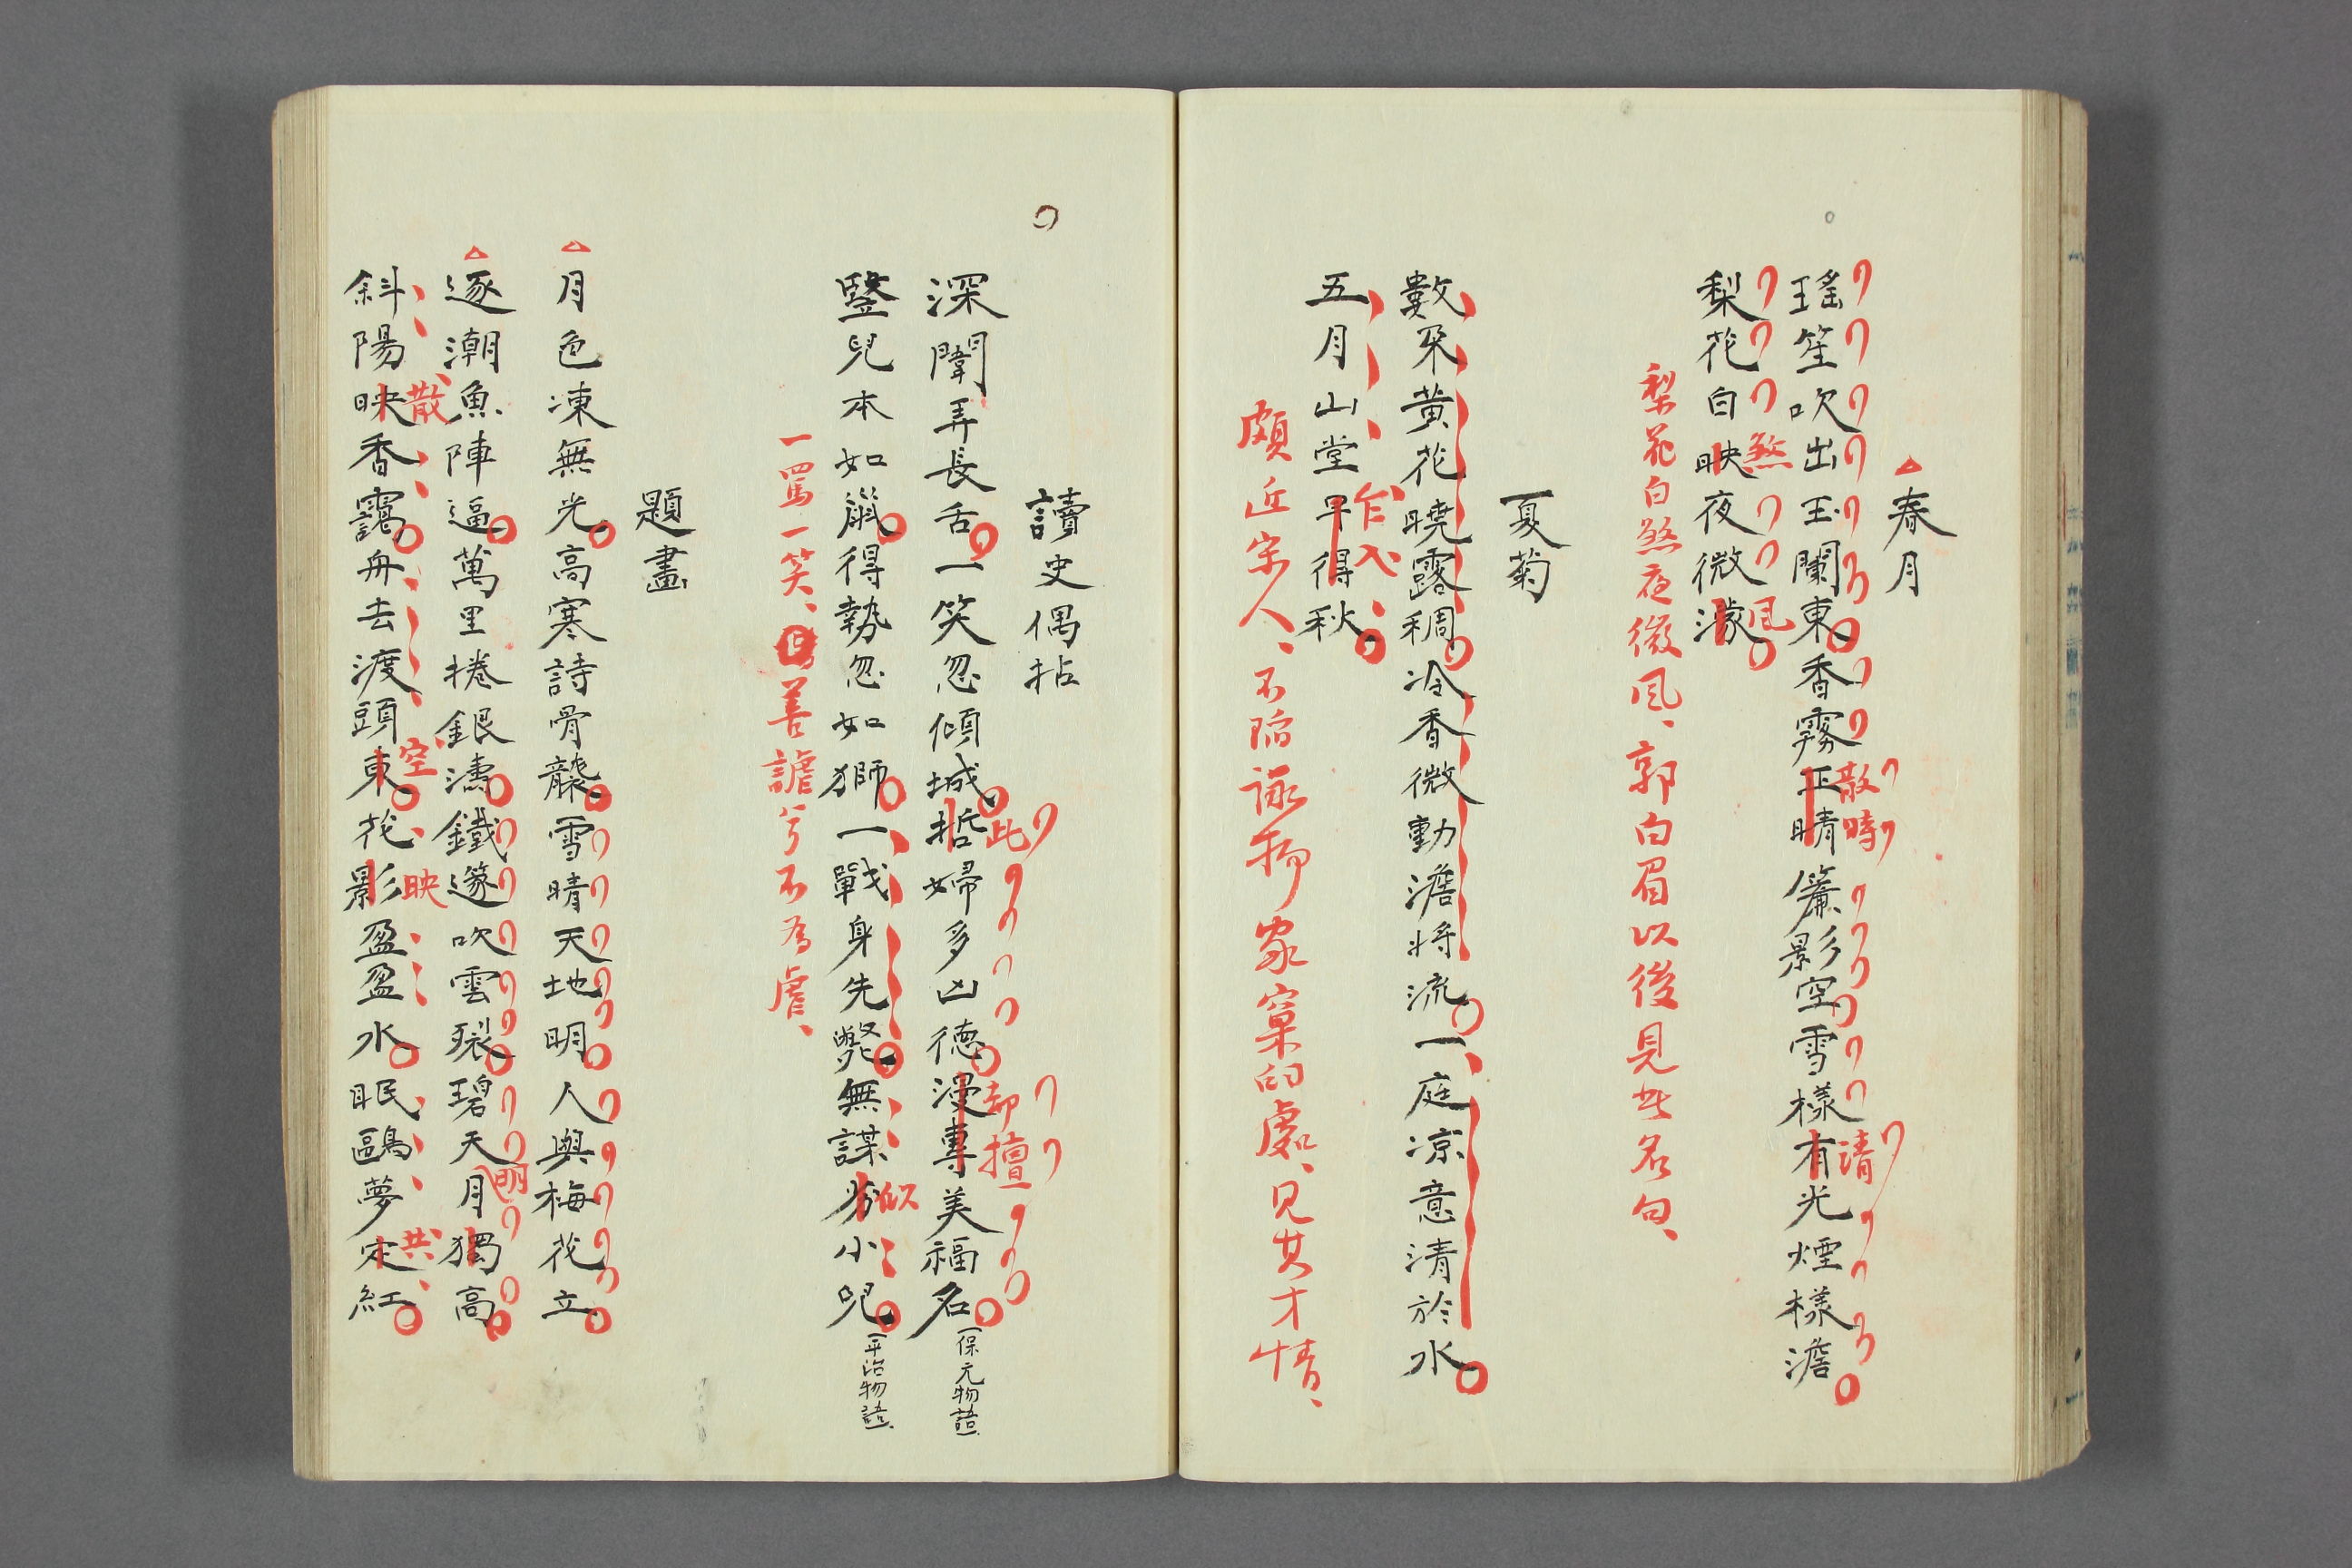 春月
瑤笙吹出玉闌東香霧正晴簾影空雪樣有光煙樣澹
散時
清
梨花白映夜微濛
煞
風
梨花白煞夜微風、郭白眉以後見此名句、
夏菊
數朶黃花曉露稠冷香微動澹将流一庭凉意清於水
五月山堂早得秋
乍入
頗近宋人、不陷詠物家窠臼處、見其才情、
讀史偶拈
深闈弄長舌一笑忽傾城哲婦多凶德漫專美福名(保元物語)
此
却擅
豎兒本如鼠得勢忽如獅一戰身先斃無謀劣小兒(平治物語)
似
一罵一笑、善謔兮不為虐、
題畫
月色凍無光高寒詩骨龍雪晴天地明人與梅花立
逐潮魚陣逼萬里捲銀濤鐵篴吹雲裂碧天月獨高
明
斜陽映香靄舟去渡頭東花影盈盈水眠鷗夢定紅
散
空
映
共